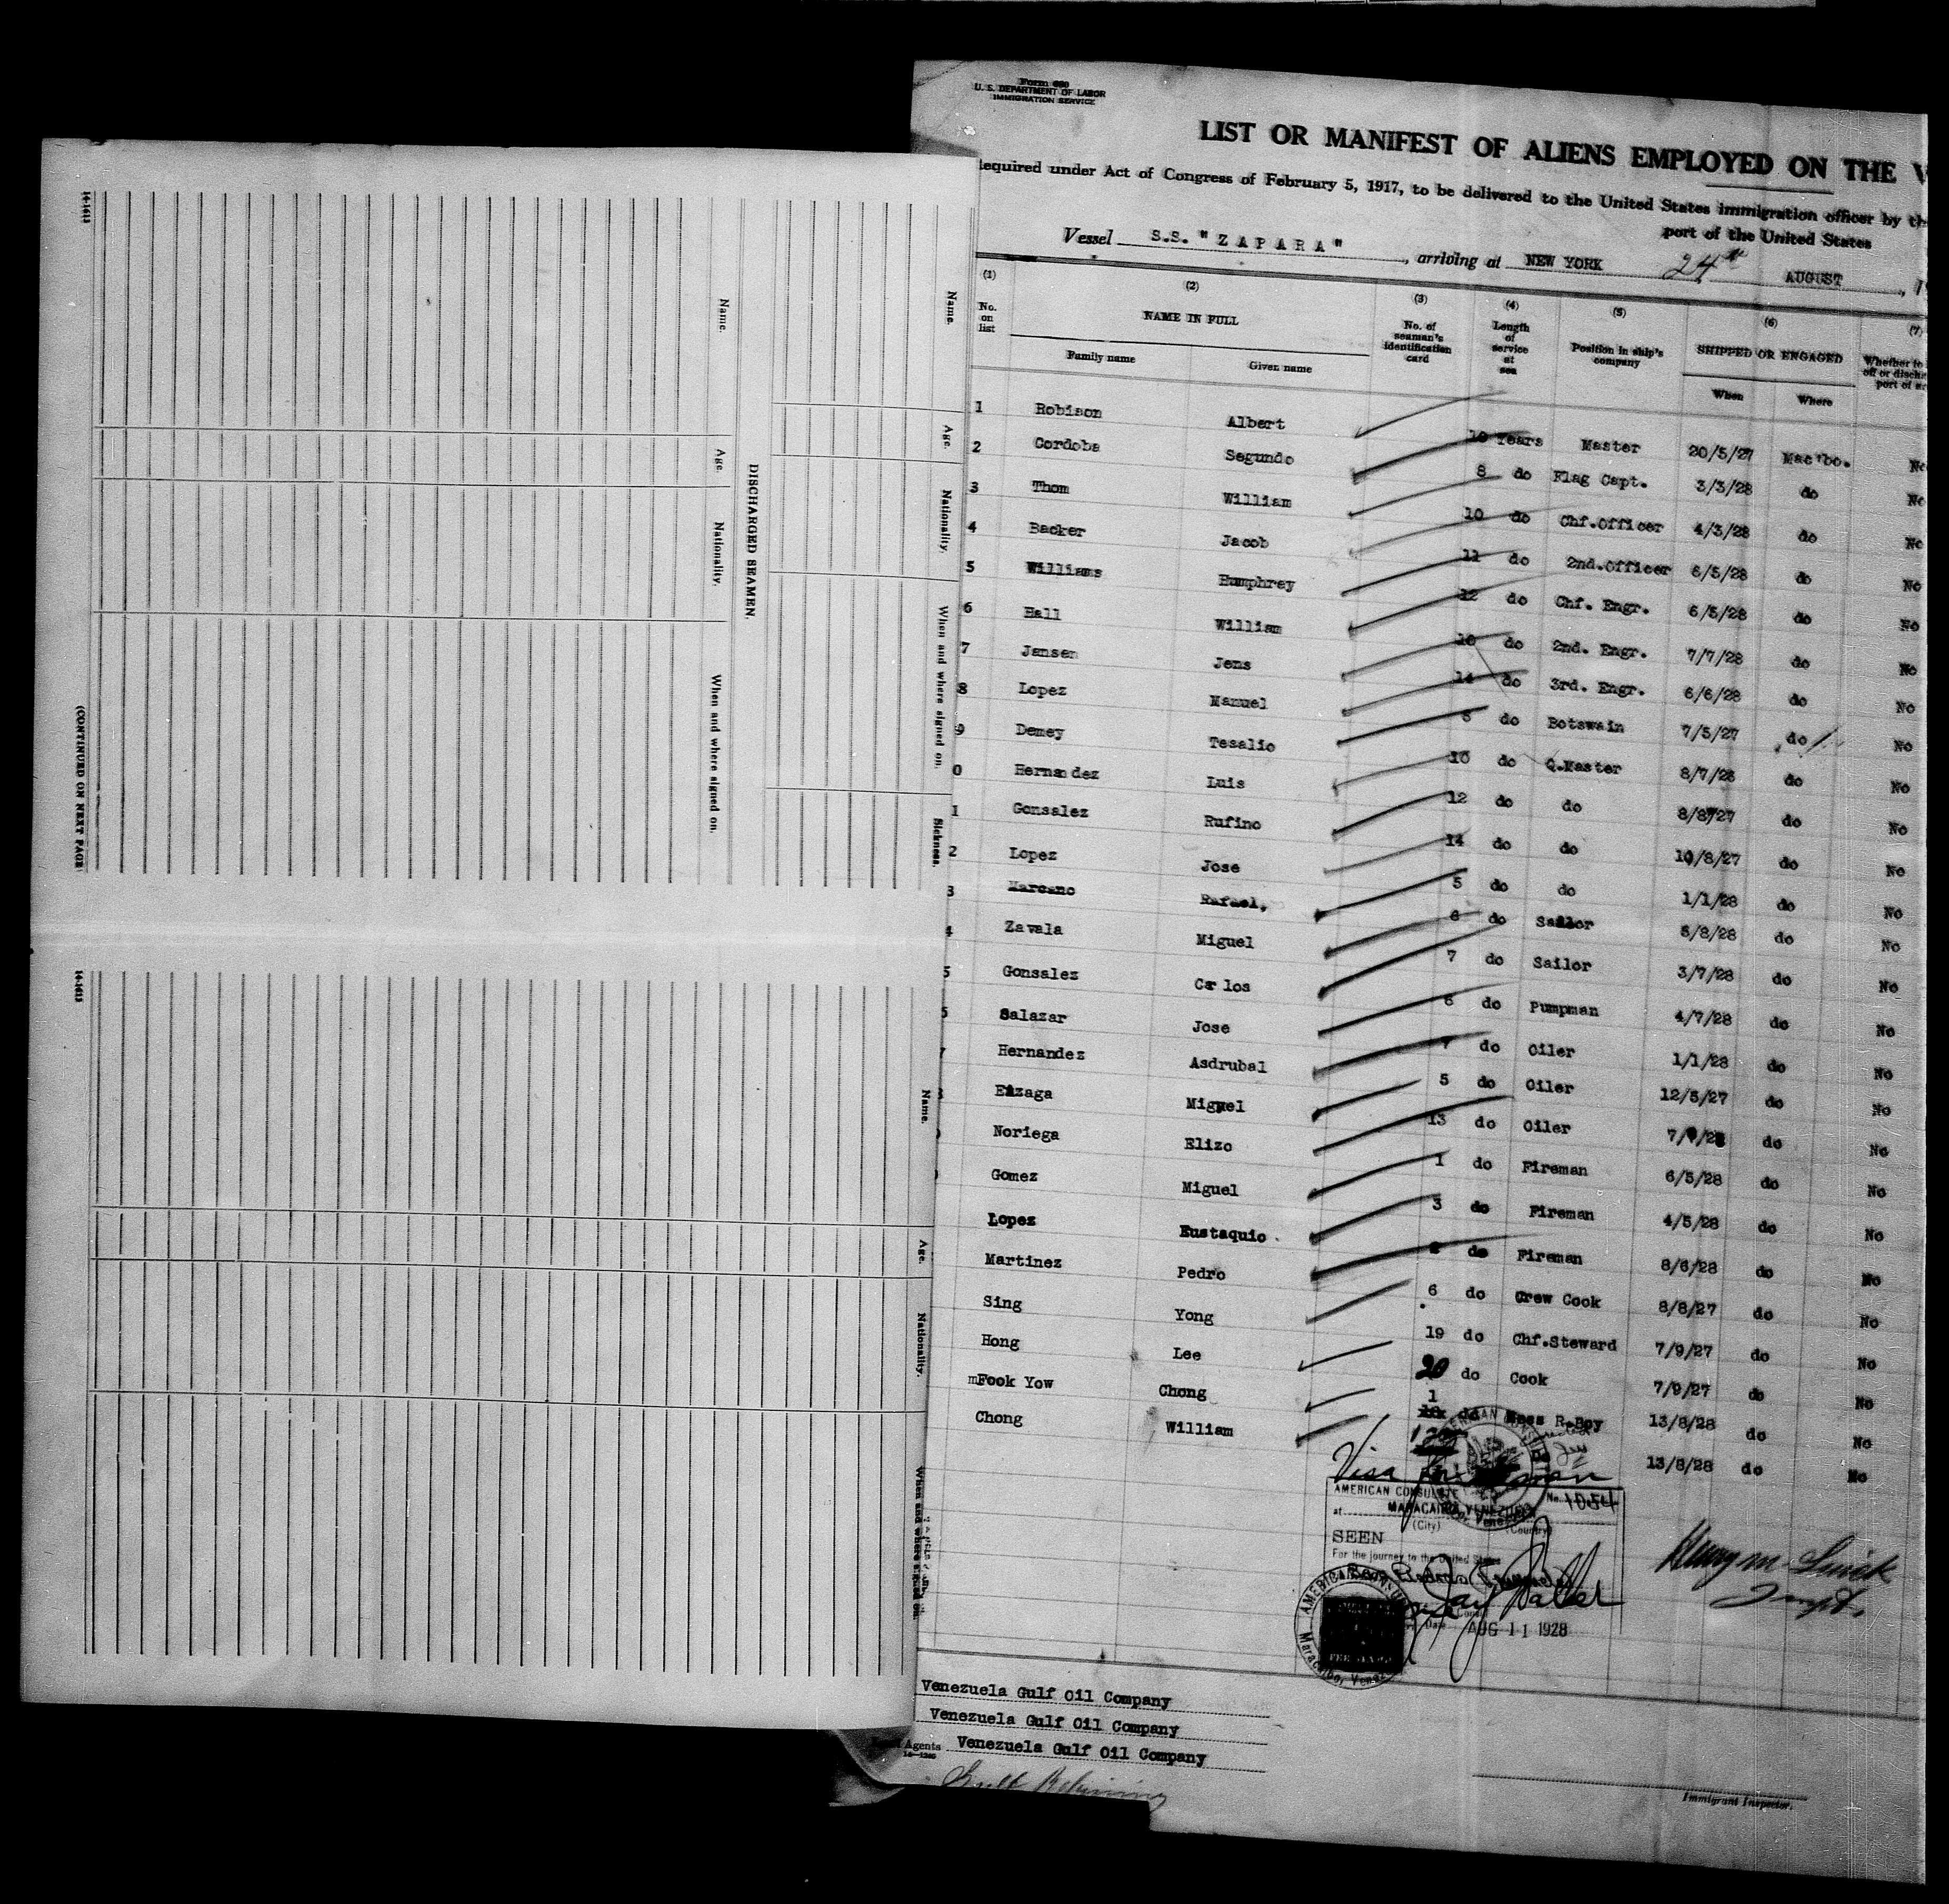 Form 680
U. S. DEPARTMENT OF LABOR
IMMIGRATION SERVICE
LIST OR MANIFEST OF ALIENS EMPLOYED ON THE
Required under Act of Congress of February 5, 1917, to be delivered to the United States immigration officer by
port of the United States
Vessel S.S. "ZAPARA", arriving at NEW YORK 24th AUGUST, 19
(1) (2) (3) (4) (5) (6) (7)
No. on list NAME IN FULL No. of seaman's identification card Length of service at sea Position in ship's company SHIPPED OR ENGAGED Whether to
Family name Given name When Where
1 Robison Albert 10 Years Master 20/5/27 Mac'bo. No
2 Cordoba Segundo 8 do Flag Capt. 3/3/28 do No
3 Thom William 10 do Chf.Officer 4/3/28 do No
4 Backer Jacob 11 do 2nd.Officer 6/5/28 do No
5 Williams Humphrey 12 do Chf. Engr. 6/5/28 do No
6 Hall William 10 do 2nd. Engr. 7/7/28 do No
7 Jansen Jens 14 do 3rd. Engr. 6/6/28 do No
8 Lopez Manuel do Botswain 7/5/27 do No
9 Demey Tesalio 10 do Q.Master 8/7/28 do No
0 Hernandez Luis 12 do do 8/8/27 do No
1 Gonsalez Rufino 14 do do 10/8/27 do No
2 Lopez Jose 5 do do 1/1/28 do No
3 Marcano Rafael, 6 do Sailor 5/8/28 do No
4 Zavala Miguel 7 do Sailor 3/7/28 do No
5 Gonsalez Carlos 6 do Pumpman 4/7/28 do No
Salazar Jose 7 do Oiler 1/1/28 do No
7 Hernandez Asdrubal 5 do Oiler 12/5/27 do No
Elzaga Miguel 13 do Oiler do No
Noriega Elizo 1 do Fireman 6/5/28 do No
Gomez Miguel 3 do Fireman 4/5/28 do No
Lopez Eustaquio do Fireman 8/6/28 do No
Martinez Pedro 6 do Crew Cook 8/8/27 do No
Sing Yong 19 do Chf.Steward 7/9/27 do No
Hong Lee 20 do Cook 7/9/27 do No
Fook Yow Chong 1 do Mess R.Boy 13/8/28 do No
Chong William 13/8/28 do No
Visa
AMERICAN CONSULATE No. 1054
at MARACAIBO, VENEZUELA
(City) (Country)
SEEN
For the journey to the United States
Date AUG 11 1928
AMERICAN CONSULATE
Maracaibo, Venezuela
Henry M.
Inspt.
Venezuela Gulf Oil Company
Venezuela Gulf Oil Company
Agents Venezuela Gulf Oil Company
Gulf Refining
Immigrant Inspector.
Name.
Age.
Nationality.
When and where signed on.
Sickness.
DISCHARGED SEAMEN.
Name.
Age.
Nationality.
When and where signed on.
(CONTINUED ON NEXT PAGE
14-1613
Name.
Age.
Nationality.
When and where signed on.
14-1613